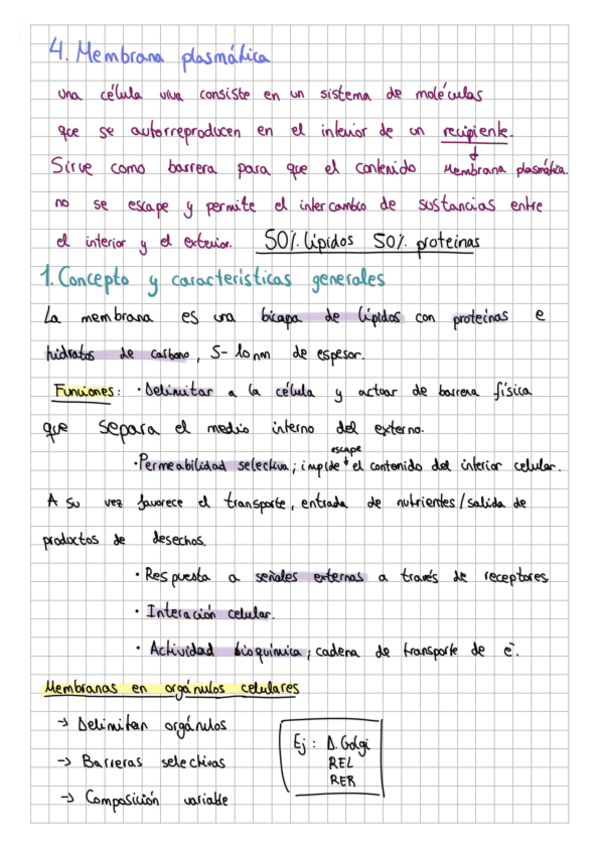 4. Membrana plasmática
una célula viva consiste en un sistema de moléculas
que se autorreproducen en el interior de un recipiente.
↓
Sirve como barrera para que el contenido Membrana plasmática.
no se escape y permite el intercambio de sustancias entre
el interior y el exterior. 50% lípidos 50% proteínas
1. Concepto y características generales
La membrana es una bicapa de lípidos con proteínas e
hidratos de carbono, 5-10nm de espesor.
Funciones: · Delimitar a la célula y actuar de barrera física
que separa el medio interno del externo.
escape
· Permeabilidad selectiva; impide ↓ el contenido del interior celular.
A su vez favorece el transporte, entrada de nutrientes/salida de
productos de desechos.
· Respuesta a señales externas a través de receptores
· Interación celular.
· Actividad bioquímica; cadena de transporte de e⁻.
Membranas en orgánulos celulares
→ Delimitan orgánulos
→ Barreras selectivas
→ Composición variable
Ej: A. Golgi
REL
RER